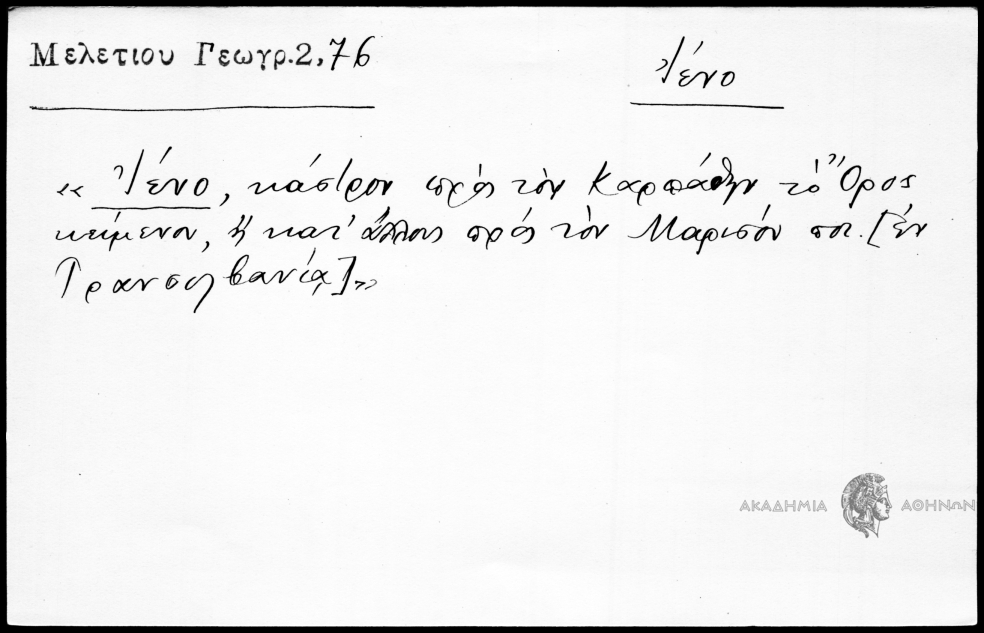 Μελετιου Γεωγρ.2,76
Ἰένο
« Ἰένο, κάστρον πρὸς τὸν Καρπάθην τὸ Ὄρος
κείμενον, ἢ κατ' ἄλλους πρὸς τὸν Μαρισὸν ποτ. [ἐν
Τρανσυλβανίᾳ]»
ΑΚΑΔΗΜΙΑ ΑΘΗΝΩΝ